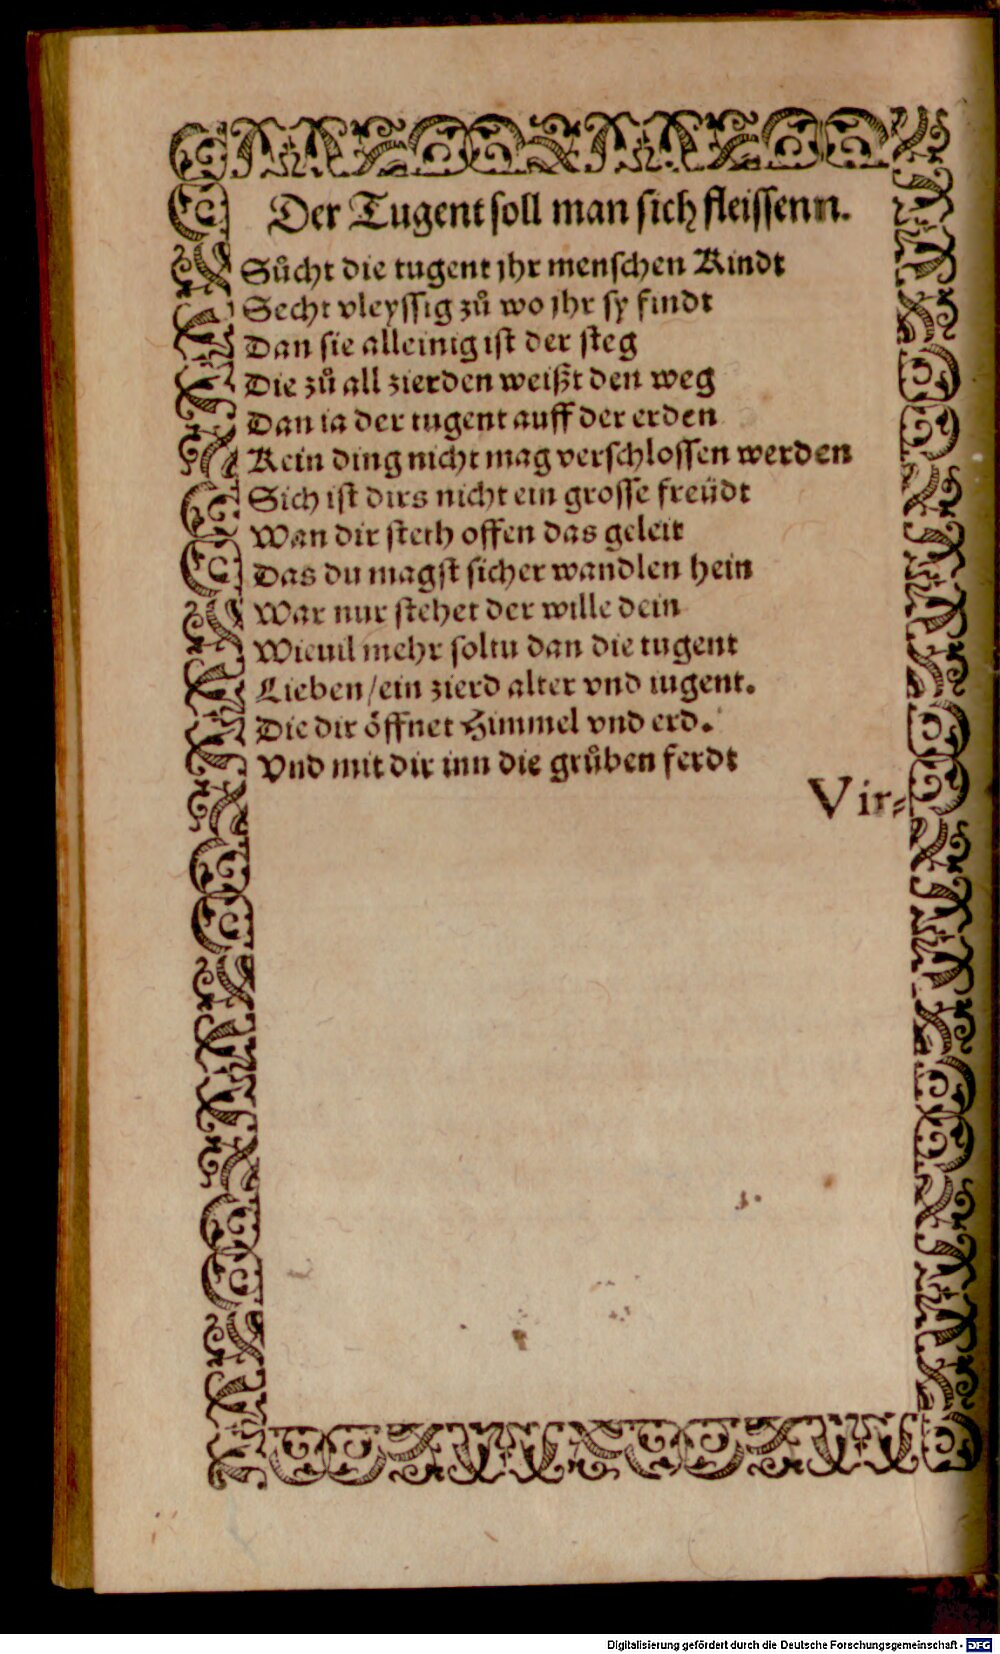 Der Tugent soll man sich fleissenn.
Sůcht die tugent jhr menschen Kindt
Secht vleyssig zů wo jhr sy findt
Dan sie alleinig ist der steg
Die zů all zierden weißt den weg
Dan ia der tugent auff der erden
Kein ding nicht mag verschlossen werden
Sich ist dirs nicht ein grosse freüdt
Wan dir steth offen das geleit
Das du magst sicher wandlen hein
War nur stehet der wille dein
Wieuil mehr soltu dan die tugent
Lieben/ein zierd alter vnd iugent.
Die dir öffnet Himmel vnd erd.
Vnd mit dir inn die grůben ferdt
Vir⸗
Digitalisierung gefördert durch die Deutsche Forschungsgemeinschaft - DFG